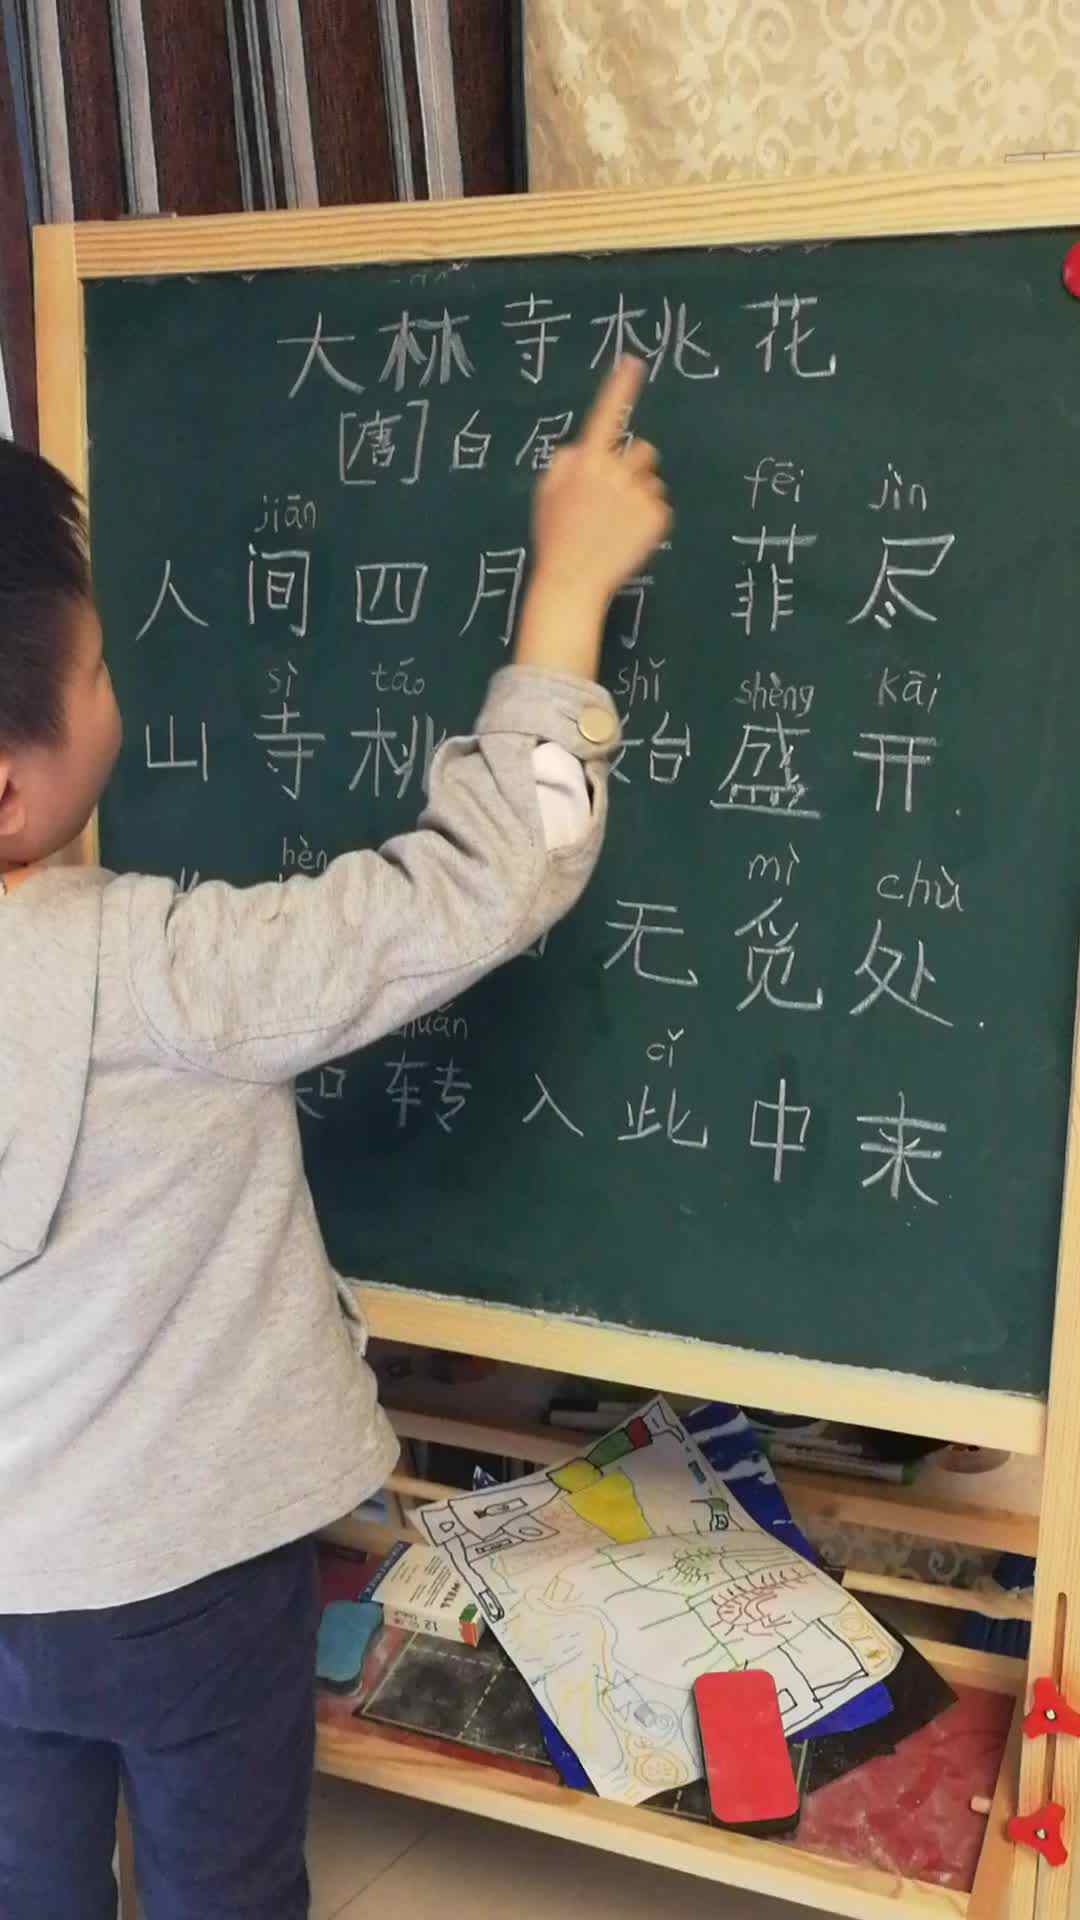 大林寺桃花
[唐]白居
jiān fēi jìn
人间四月 菲尽
sì táo shǐ shèng kāi
山寺桃 始盛开.
hèn mì chù
无觅处.
cǐ
知转入此中来
12